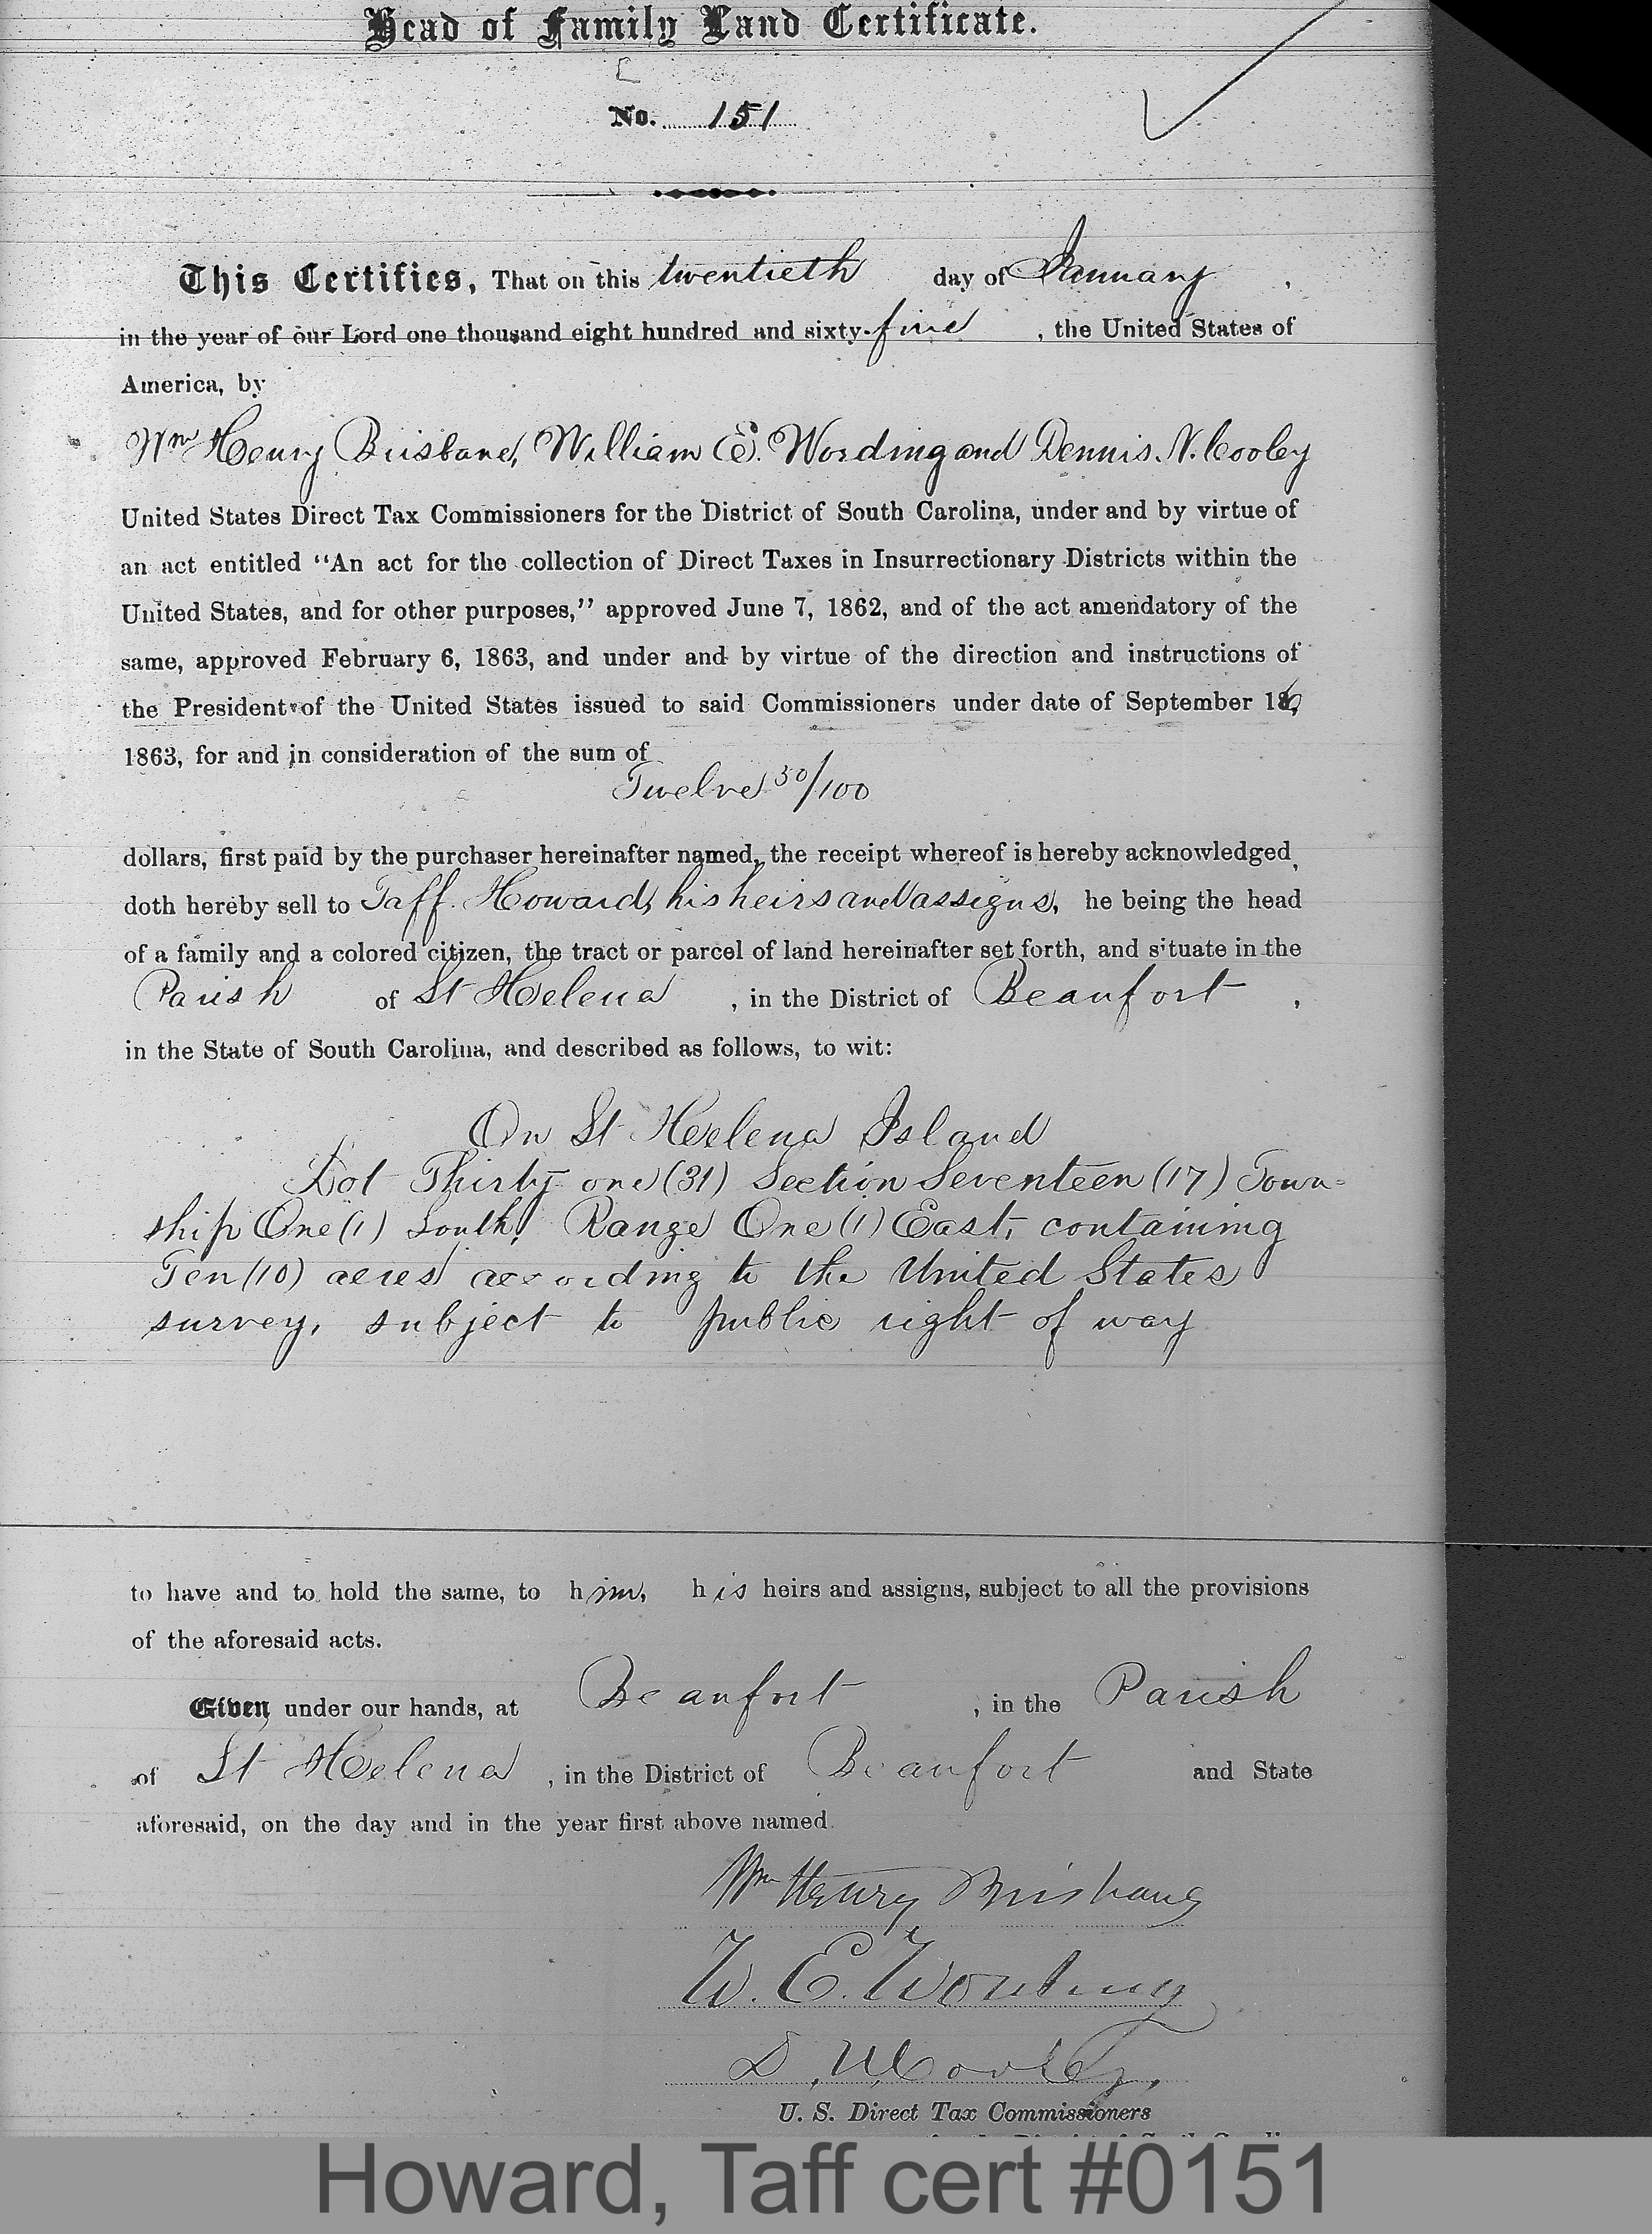 Head of Family Land Certificate.
No. 151
This Certifies, That on this twentieth day of January,
in the year of our Lord one thousand eight hundred and sixty-five, the United States of
America, by
Wm Henry Brisbane, William E. Wording and Dennis N. Cooley
United States Direct Tax Commissioners for the District of South Carolina, under and by virtue of
an act entitled “An act for the collection of Direct Taxes in Insurrectionary Districts within the
United States, and for other purposes,” approved June 7, 1862, and of the act amendatory of the
same, approved February 6, 1863, and under and by virtue of the direction and instructions of
the President of the United States issued to said Commissioners under date of September 16,
1863, for and in consideration of the sum of
Twelve 50/100
dollars, first paid by the purchaser hereinafter named, the receipt whereof is hereby acknowledged,
doth hereby sell to Taff. Howard, his heirs and assigns, he being the head
of a family and a colored citizen, the tract or parcel of land hereinafter set forth, and situate in the
Parish of St Helena, in the District of Beaufort,
in the State of South Carolina, and described as follows, to wit:
On St Helena Island
Lot Thirty one (31) Section Seventeen (17) Town-
ship One (1) South, Range One (1) East, containing
Ten (10) acres according to the United States
survey, subject to public right of way
to have and to hold the same, to him, his heirs and assigns, subject to all the provisions
of the aforesaid acts.
Given under our hands, at Beaufort, in the Parish
of St Helena, in the District of Beaufort and State
aforesaid, on the day and in the year first above named.
Wm Henry Brisbane
W. E. Wording
D. N. Cooley,
U. S. Direct Tax Commissioners
Howard, Taff cert #0151